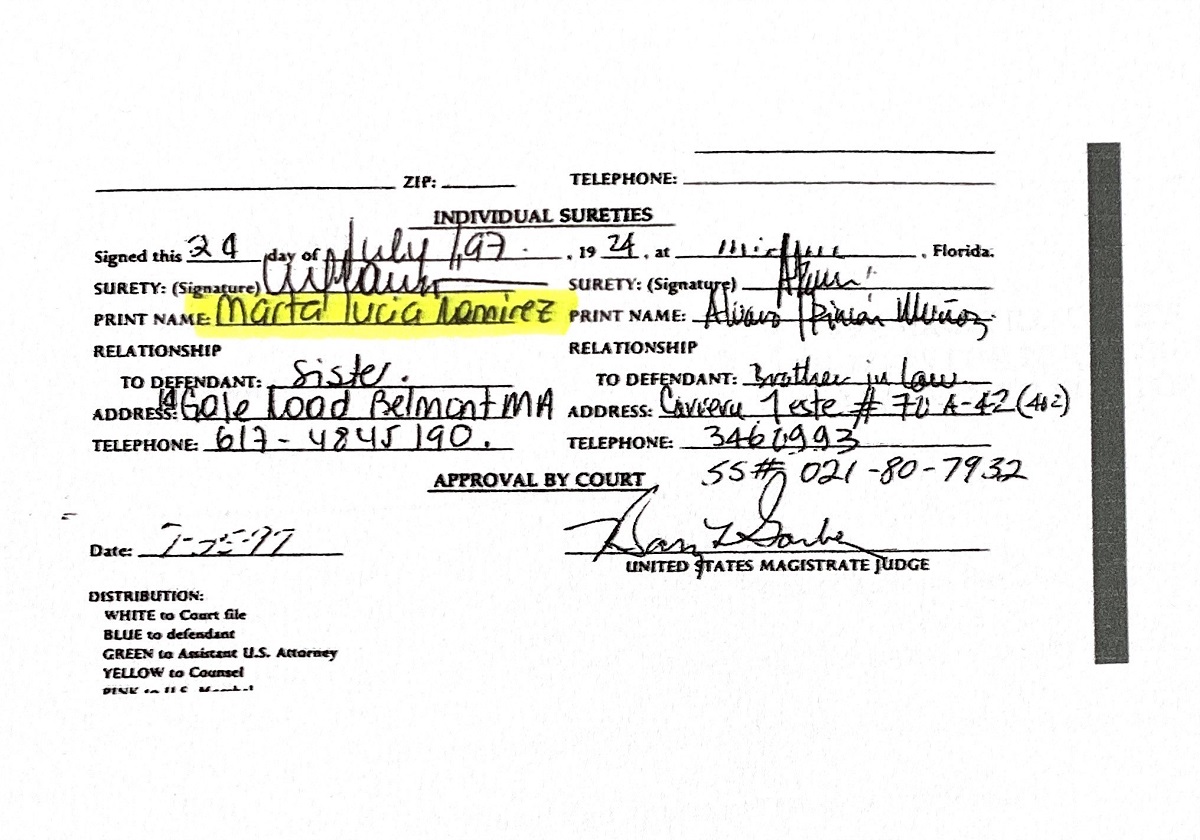 ZIP: TELEPHONE:
INDIVIDUAL SURETIES
Signed this 24 day of July /97. , 19 24, at , Florida.
SURETY: (Signature) SURETY: (Signature)
PRINT NAME: Marta Lucia Ramirez PRINT NAME: Alvaro Rincón Muñoz
RELATIONSHIP RELATIONSHIP
TO DEFENDANT: Sister. TO DEFENDANT: Brother in Law
ADDRESS: Gale Road Belmont MA ADDRESS: Carrera 7 este # 70 A-42 (402)
TELEPHONE: 617-4845190. TELEPHONE: 3460993
SS# 021-80-7932
APPROVAL BY COURT
Date: 7-25-97
UNITED STATES MAGISTRATE JUDGE
DISTRIBUTION:
WHITE to Court file
BLUE to defendant
GREEN to Assistant U.S. Attorney
YELLOW to Counsel
PINK to U.S. Marshal